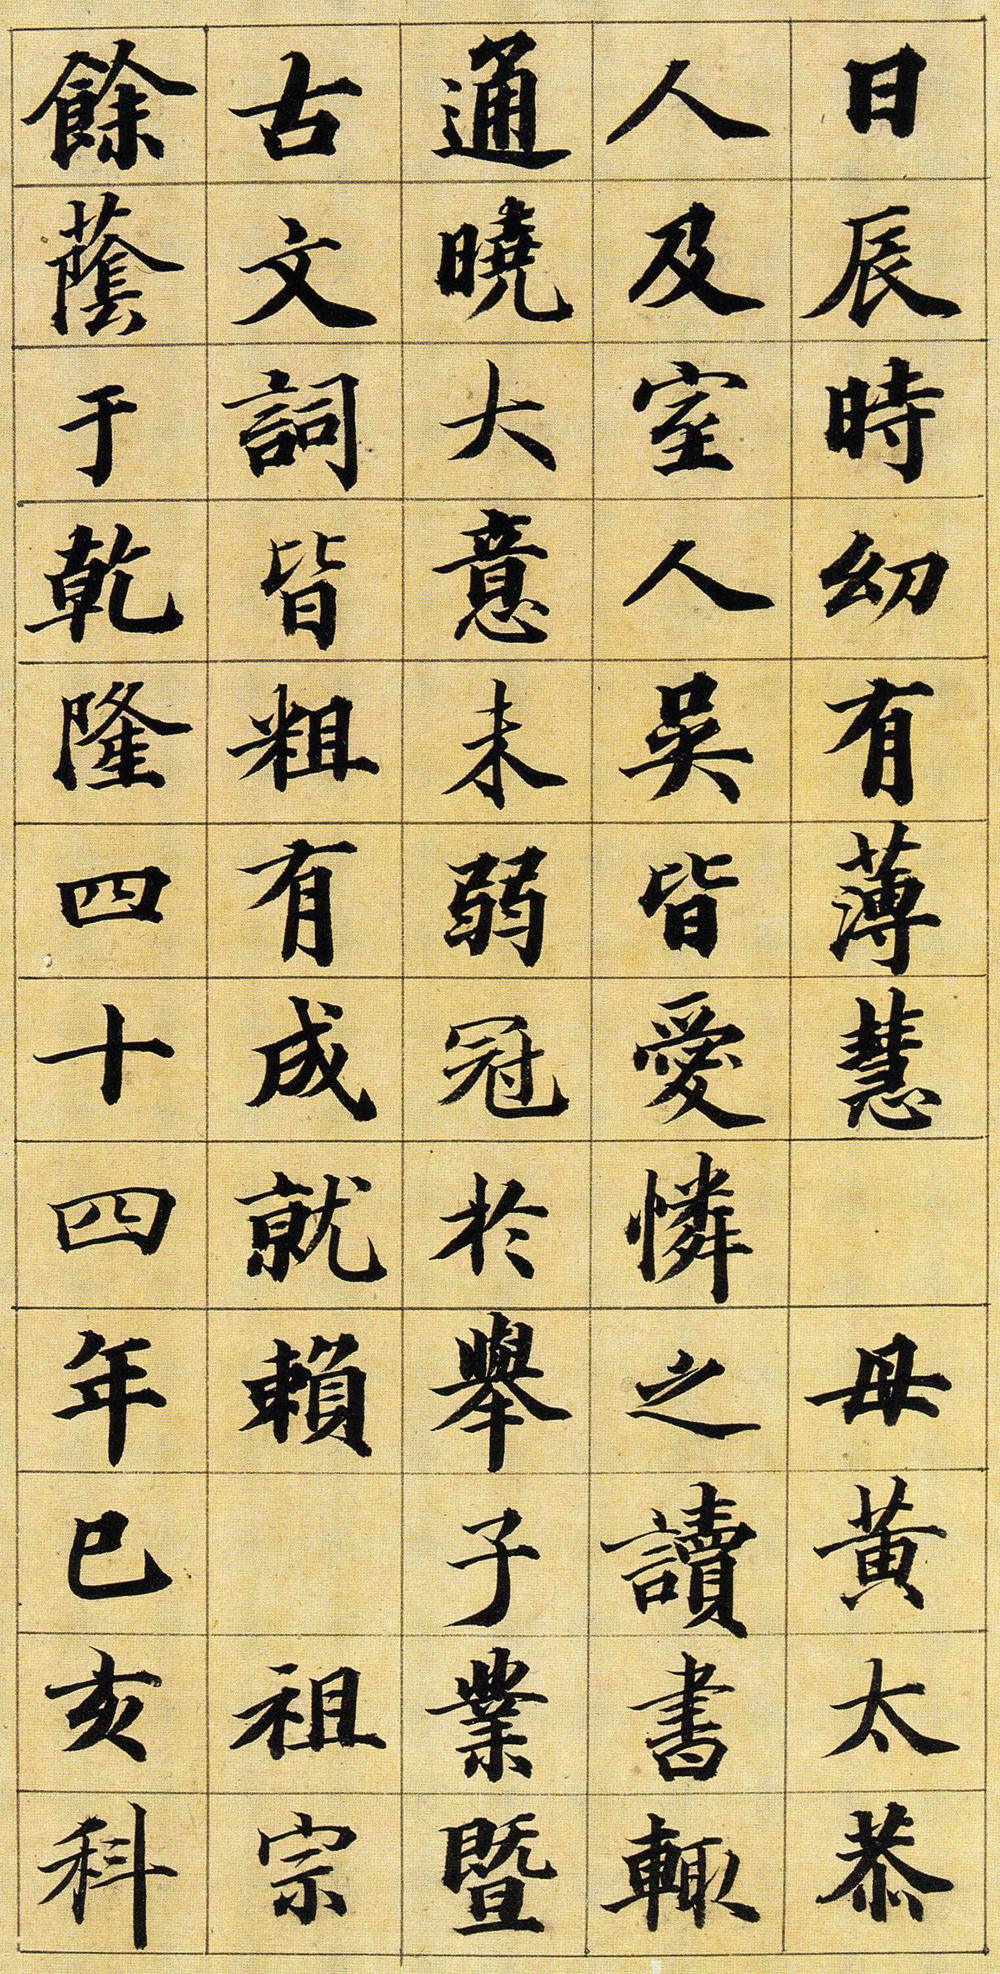 日辰時幼有薄慧 母黃太恭
人及室人吳皆愛憐之讀書輙
通曉大意未弱冠於舉子業暨
古文詞皆粗有成就賴 祖宗
餘蔭于乾隆四十四年已亥科